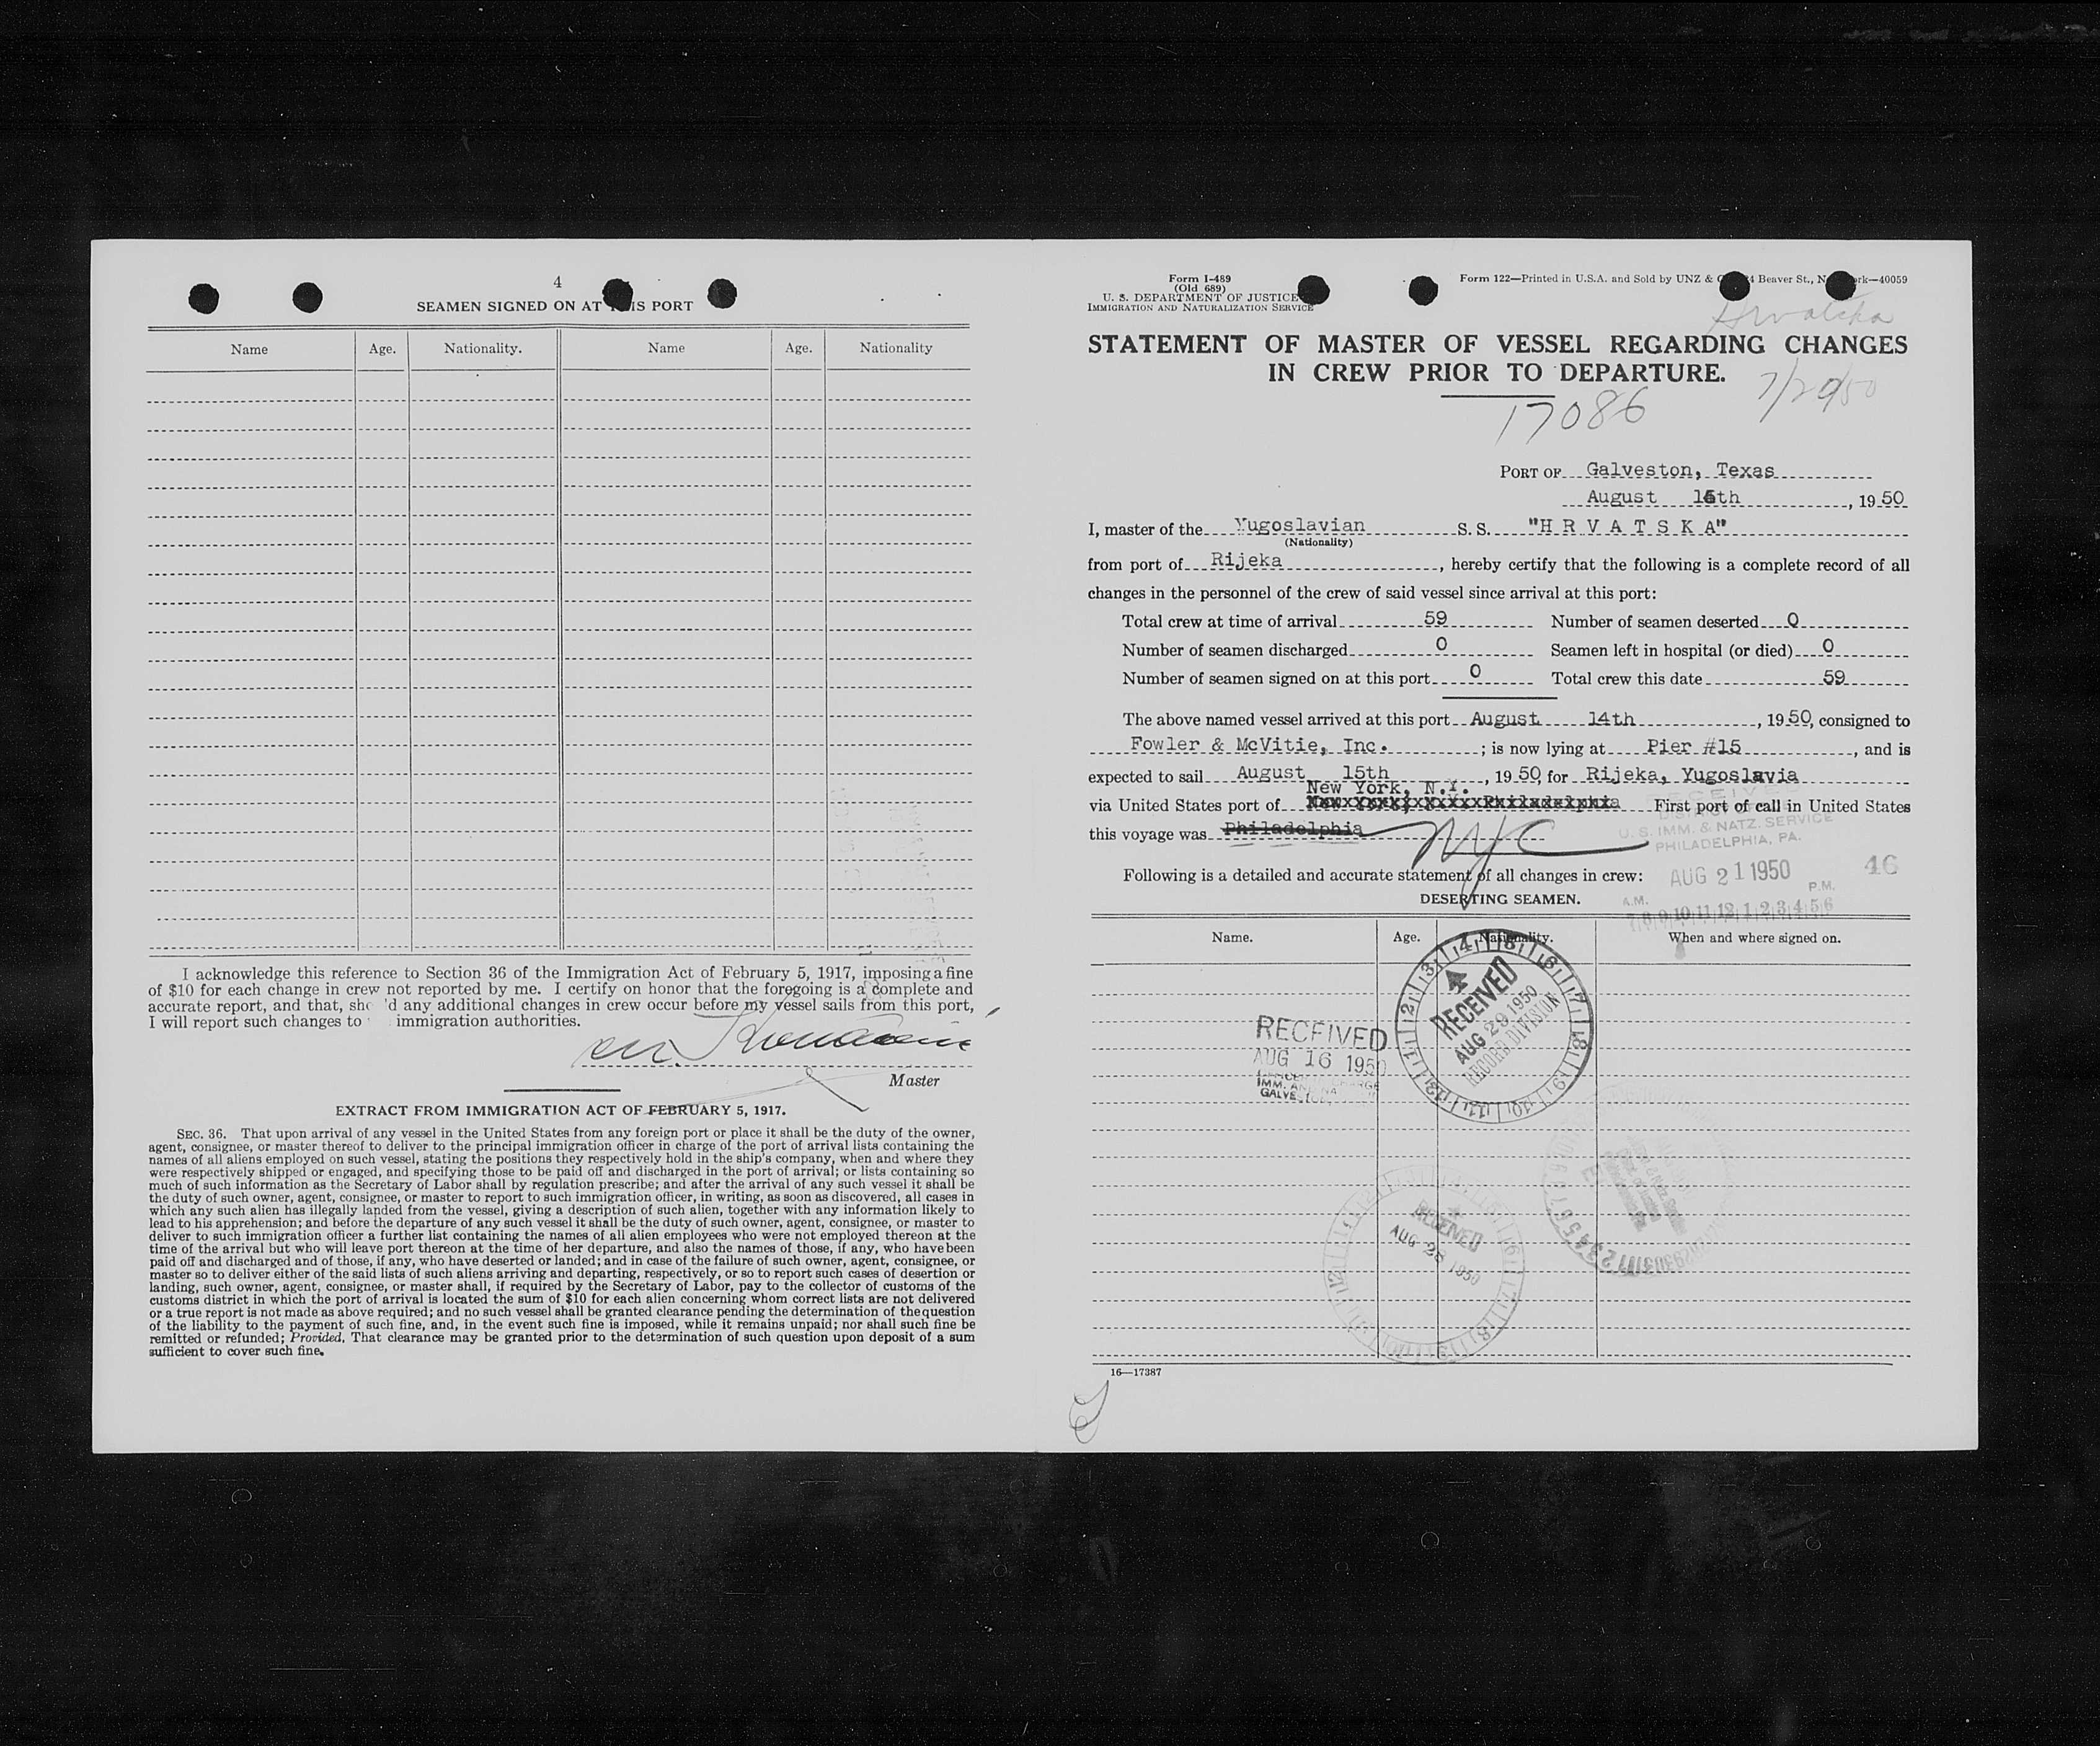 4
SEAMEN SIGNED ON AT THIS PORT
Name Age. Nationality. Name Age. Nationality
I acknowledge this reference to Section 36 of the Immigration Act of February 5, 1917, imposing a fine
of $10 for each change in crew not reported by me. I certify on honor that the foregoing is a complete and
accurate report, and that, sho 'd any additional changes in crew occur before my vessel sails from this port,
I will report such changes to immigration authorities.
Master
EXTRACT FROM IMMIGRATION ACT OF FEBRUARY 5, 1917.
SEC. 36. That upon arrival of any vessel in the United States from any foreign port or place it shall be the duty of the owner,
agent, consignee, or master thereof to deliver to the principal immigration officer in charge of the port of arrival lists containing the
names of all aliens employed on such vessel, stating the positions they respectively hold in the ship's company, when and where they
were respectively shipped or engaged, and specifying those to be paid off and discharged in the port of arrival; or lists containing so
much of such information as the Secretary of Labor shall by regulation prescribe; and after the arrival of any such vessel it shall be
the duty of such owner, agent, consignee, or master to report to such immigration officer, in writing, as soon as discovered, all cases in
which any such alien has illegally landed from the vessel, giving a description of such alien, together with any information likely to
lead to his apprehension; and before the departure of any such vessel it shall be the duty of such owner, agent, consignee, or master to
deliver to such immigration officer a further list containing the names of all alien employees who were not employed thereon at the
time of the arrival but who will leave port thereon at the time of her departure, and also the names of those, if any, who have been
paid off and discharged and of those, if any, who have deserted or landed; and in case of the failure of such owner, agent, consignee, or
master so to deliver either of the said lists of such aliens arriving and departing, respectively, or so to report such cases of desertion or
landing, such owner, agent, consignee, or master shall, if required by the Secretary of Labor, pay to the collector of customs of the
customs district in which the port of arrival is located the sum of $10 for each alien concerning whom correct lists are not delivered
or a true report is not made as above required; and no such vessel shall be granted clearance pending the determination of the question
of the liability to the payment of such fine, and, in the event such fine is imposed, while it remains unpaid; nor shall such fine be
remitted or refunded; Provided, That clearance may be granted prior to the determination of such question upon deposit of a sum
sufficient to cover such fine.
Form I-489
(Old 689)
U. S. DEPARTMENT OF JUSTICE
IMMIGRATION AND NATURALIZATION SERVICE
Form 122—Printed in U.S.A. and Sold by UNZ & C 4 Beaver St., N rk—40059
Hrvatska
STATEMENT OF MASTER OF VESSEL REGARDING CHANGES
IN CREW PRIOR TO DEPARTURE.
7/29/50
17086
PORT OF Galveston, Texas
August 16th, 1950
I, master of the Yugoslavian S. S. "H R V A T S K A"
(Nationality)
from port of Rijeka, hereby certify that the following is a complete record of all
changes in the personnel of the crew of said vessel since arrival at this port:
Total crew at time of arrival 59 Number of seamen deserted 0
Number of seamen discharged 0 Seamen left in hospital (or died) 0
Number of seamen signed on at this port 0 Total crew this date 59
The above named vessel arrived at this port August 14th, 1950, consigned to
Fowler & McVitie, Inc.; is now lying at Pier #15, and is
expected to sail August 15th, 1950 for Rijeka, Yugoslavia
New York, N.Y.
via United States port of Philadelphia First port of call in United States
this voyage was Philadelphia NYC
RECEIVED
U. S. IMM. & NATZ. SERVICE
PHILADELPHIA, PA.
Following is a detailed and accurate statement of all changes in crew:
AUG 21 1950 46
A.M. P.M.
7 8 9 10 11 12 1 2 3 4 5 6
DESERTING SEAMEN.
Name. Age. Nationality. When and where signed on.
RECEIVED
AUG 29 1950
RECORD DIVISION
RECEIVED
AUG 16 1950
RECEIVED
AUG 28 1950
16—17387